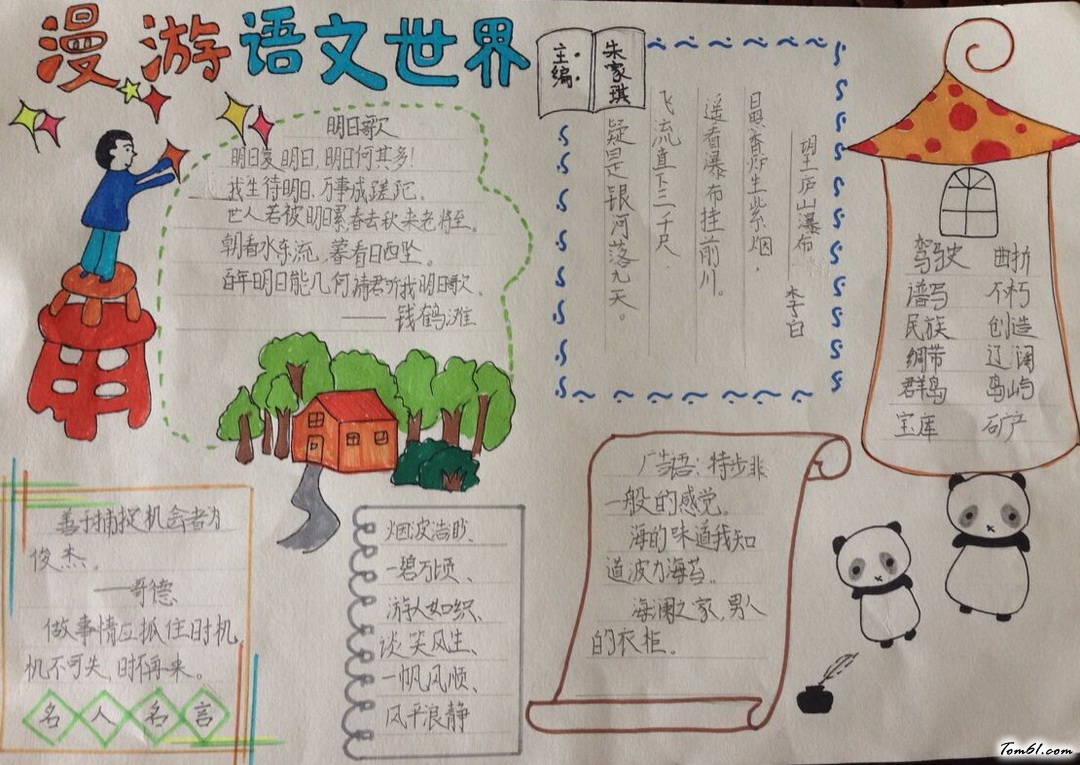 漫游语文世界
主编：
朱家琪
明日歌
明日复明日，明日何其多！
我生待明日，万事成蹉跎。
世人若被明日累，春去秋来老将至。
朝看水东流，暮看日西坠。
百年明日能几何，请君听我明日歌。
——钱鹤滩
望庐山瀑布
李白
日照香炉生紫烟，
遥看瀑布挂前川。
飞流直下三千尺
疑是银河落九天。
驾驶 曲折
谱写 不朽
民族 创造
绸带 辽阔
群岛 岛屿
宝库 矿产
善于捕捉机会者为
俊杰。
——哥德
做事情应抓住时机，
机不可失，时不再来。
名人名言
烟波浩渺、
一碧万顷、
游人如织、
谈笑风生、
一帆风顺、
风平浪静
广告语：特步非
一般的感觉。
海的味道我知
道波力海苔。
海澜之家，男人
的衣柜。
Tom61.com